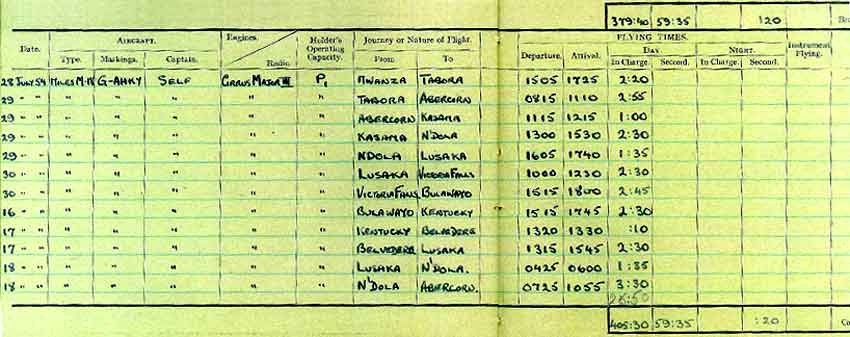 379:40 59:35 :20
AIRCRAFT. Engines. Holder's Operating Capacity. Journey or Nature of Flight. FLYING TIMES. Instrument Flying.
Date. Type. Markings. Captain. Radio. From To Departure. Arrival. DAY. In Charge. Second. NIGHT. In Charge. Second.
28 JULY 54 MILES M.18 G-AHKY SELF CIRRUS MAJOR III P1 MWANZA TABORA 1505 1725 2:20
29 " " " " " " " TABORA ABERCORN 0815 1110 2:55
29 " " " " " " " ABERCORN KASAMA 1115 1215 1:00
29 " " " " " " " KASAMA N'DOLA 1300 1530 2:30
29 " " " " " " " NDOLA LUSAKA 1605 1740 1:35
30 " " " " " " " LUSAKA VICTORIA FALLS 1000 1230 2:30
30 " " " " " " " VICTORIA FALLS BULAWAYO 1515 1800 2:45
16 " " " " " " " BULAWAYO KENTUCKY 1515 1745 2:30
17 " " " " " " " KENTUCKY BELVEDERE 1320 1330 :10
17 " " " " " " " BELVEDERE LUSAKA 1315 1545 2:30
18 " " " " " " " LUSAKA N'DOLA. 0425 0600 1:35
18 " " " " " " " N'DOLA ABERCORN. 0725 1055 3:30
405:30 59:35 :20